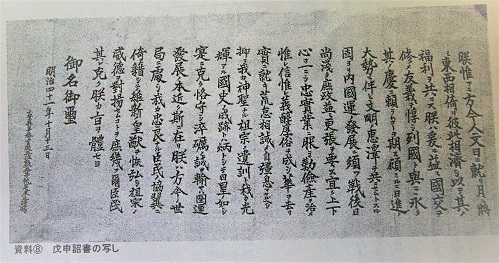 朕惟フニ方今人文日ニ就リ月ニ將ミ
東西相倚リ彼此相濟シ以テ其ノ
福利ヲ共ニス朕ハ爰ニ益々國交ヲ
修メ友義ヲ惇シ列國ト與ニ永ク
其ノ慶ニ賴ラムコトヲ期ス顧ミルニ日進ノ
大勢ニ伴ヒ文明ノ惠澤ヲ共ニセムトスル
固ヨリ内國運ノ發展ニ須ツ戰後日
尚淺ク庶政益々更張ヲ要ス宜ク上下
心ヲ一ニシ忠實業ニ服シ勤儉産ヲ治メ
惟レ信惟レ義醇厚俗ヲ成シ華ヲ去リ
實ニ就キ荒怠相誡メ自彊息マサルヘシ
抑々我カ神聖ナル祖宗ノ遺訓ト我カ光
輝アル國史ノ成跡トハ炳トシテ日星ノ如シ
寔ニ克ク恪守シ淬礪ノ誠ヲ輸サハ國運
發展ノ本近ク斯ニ在リ朕ハ方今ノ世
局ニ處シ我カ忠良ナル臣民ノ協翼ニ
倚藉シテ維新ノ皇猷ヲ恢弘シ祖宗ノ
威德ヲ對揚セムコトヲ庶幾フ爾臣民
其レ克ク朕カ旨ヲ體セヨ
御名御璽
明治四十一年十月十三日
資料⑧ 戊申詔書の写し